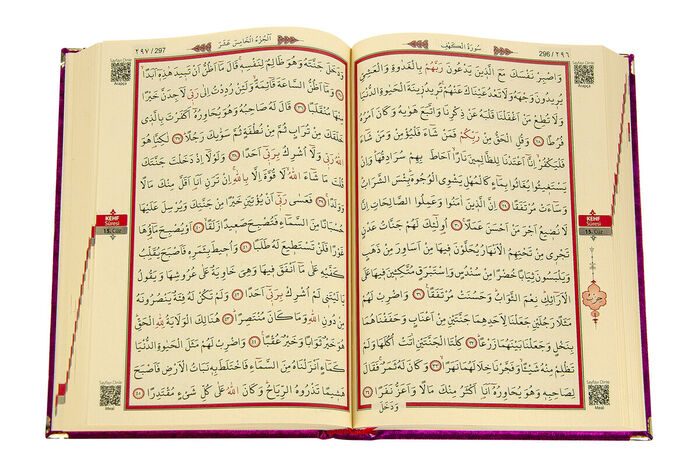 ٢٩٦ / 296
سُورَةُ الْكَهْفِ
Sayfayı Dinle
Arapça
وَاصْبِرْ نَفْسَكَ مَعَ الَّذ۪ينَ يَدْعُونَ رَبَّهُمْ بِالْغَدٰوةِ وَالْعَشِيِّ
يُر۪يدُونَ وَجْهَهُ وَلَا تَعْدُ عَيْنَاكَ عَنْهُمْ تُر۪يدُ ز۪ينَةَ الْحَيٰوةِ الدُّنْيَا
وَلَا تُطِعْ مَنْ اَغْفَلْنَا قَلْبَهُ عَنْ ذِكْرِنَا وَاتَّبَعَ هَوٰيهُ وَكَانَ اَمْرُهُ
فُرُطًا ﴿٢٨﴾ وَقُلِ الْحَقُّ مِنْ رَبِّكُمْ فَمَنْ شَٓاءَ فَلْيُؤْمِنْ وَمَنْ شَٓاءَ
فَلْيَكْفُرْ اِنَّٓا اَعْتَدْنَا لِلظَّالِم۪ينَ نَارًا اَحَاطَ بِهِمْ سُرَادِقُهَا وَاِنْ
يَسْتَغ۪يثُوا يُغَاثُوا بِمَٓاءٍ كَالْمُهْلِ يَشْوِي الْوُجُوهَ بِئْسَ الشَّرَابُ
وَسَٓاءَتْ مُرْتَفَقًا ﴿٢٩﴾ اِنَّ الَّذ۪ينَ اٰمَنُوا وَعَمِلُوا الصَّالِحَاتِ اِنَّا
لَا نُض۪يعُ اَجْرَ مَنْ اَحْسَنَ عَمَلًا ﴿٣٠﴾ اُو۬لٰٓئِكَ لَهُمْ جَنَّاتُ عَدْنٍ
تَجْر۪ي مِنْ تَحْتِهِمُ الْاَنْهَارُ يُحَلَّوْنَ ف۪يهَا مِنْ اَسَاوِرَ مِنْ ذَهَبٍ
وَيَلْبَسُونَ ثِيَابًا خُضْرًا مِنْ سُنْدُسٍ وَاِسْتَبْرَقٍ مُتَّكِـ۪ٔينَ ف۪يهَا عَلَى
الْاَرَٓائِكِ نِعْمَ الثَّوَابُ وَحَسُنَتْ مُرْتَفَقًا ﴿٣١﴾ وَاضْرِبْ لَهُمْ
مَثَلًا رَجُلَيْنِ جَعَلْنَا لِاَحَدِهِمَا جَنَّتَيْنِ مِنْ اَعْنَابٍ وَحَفَفْنَاهُمَا
بِنَخْلٍ وَجَعَلْنَا بَيْنَهُمَا زَرْعًا ﴿٣٢﴾ كِلْتَا الْجَنَّتَيْنِ اٰتَتْ اُكُلَهَا وَلَمْ
تَظْلِمْ مِنْهُ شَيْـًٔا وَفَجَّرْنَا خِلَالَهُمَا نَهَرًا ﴿٣٣﴾ وَكَانَ لَهُ ثَمَرٌ فَقَالَ
لِصَاحِبِه۪ وَهُوَ يُحَاوِرُهُٓ اَنَا۬ اَكْثَرُ مِنْكَ مَالًا وَاَعَزُّ نَفَرًا ﴿٣٤﴾
وَدَخَلَ
KEHF
Sûresi
15. Cüz
حزب
Sayfayı Dinle
Meal
اَلْجُزْءُ الْخَامِسَ عَشَرَ
٢٩٧ / 297
Sayfayı Dinle
Arapça
وَدَخَلَ جَنَّتَهُ وَهُوَ ظَالِمٌ لِنَفْسِه۪ قَالَ مَٓا اَظُنُّ اَنْ تَب۪يدَ هٰذِه۪ٓ اَبَدًا
﴿٣٥﴾ وَمَٓا اَظُنُّ السَّاعَةَ قَٓائِمَةً وَلَئِنْ رُدِدْتُ اِلٰى رَبّ۪ي لَاَجِدَنَّ خَيْرًا
مِنْهَا مُنْقَلَبًا ﴿٣٦﴾ قَالَ لَهُ صَاحِبُهُ وَهُوَ يُحَاوِرُهُٓ اَكَفَرْتَ بِالَّذ۪ي
خَلَقَكَ مِنْ تُرَابٍ ثُمَّ مِنْ نُطْفَةٍ ثُمَّ سَوّٰيكَ رَجُلًا ﴿٣٧﴾ لٰكِنَّا۬ هُوَ
اللّٰهُ رَبّ۪ي وَلَٓا اُشْرِكُ بِرَبّ۪ٓي اَحَدًا ﴿٣٨﴾ وَلَوْلَٓا اِذْ دَخَلْتَ جَنَّتَكَ
قُلْتَ مَا شَٓاءَ اللّٰهُ لَا قُوَّةَ اِلَّا بِاللّٰهِ اِنْ تَرَنِ اَنَا۬ اَقَلَّ مِنْكَ مَالًا
وَوَلَدًا ﴿٣٩﴾ فَعَسٰى رَبّ۪ٓي اَنْ يُؤْتِيَنِ خَيْرًا مِنْ جَنَّتِكَ وَيُرْسِلَ عَلَيْهَا
حُسْبَانًا مِنَ السَّمَٓاءِ فَتُصْبِحَ صَع۪يدًا زَلَقًا ﴿٤٠﴾ اَوْ يُصْبِحَ مَٓاؤُ۬هَا
غَوْرًا فَلَنْ تَسْتَط۪يعَ لَهُ طَلَبًا ﴿٤١﴾ وَاُح۪يطَ بِثَمَرِه۪ فَاَصْبَحَ يُقَلِّبُ
كَفَّيْهِ عَلٰى مَٓا اَنْفَقَ ف۪يهَا وَهِيَ خَاوِيَةٌ عَلٰى عُرُوشِهَا وَيَقُولُ
يَا لَيْتَن۪ي لَمْ اُشْرِكْ بِرَبّ۪ٓي اَحَدًا ﴿٤٢﴾ وَلَمْ تَكُنْ لَهُ فِئَةٌ يَنْصُرُونَهُ
مِنْ دُونِ اللّٰهِ وَمَا كَانَ مُنْتَصِرًا ﴿٤٣﴾ هُنَالِكَ الْوَلَايَةُ لِلّٰهِ الْحَقِّ
هُوَ خَيْرٌ ثَوَابًا وَخَيْرٌ عُقْبًا ﴿٤٤﴾ وَاضْرِبْ لَهُمْ مَثَلَ الْحَيٰوةِ الدُّنْيَا
كَمَٓاءٍ اَنْزَلْنَاهُ مِنَ السَّمَٓاءِ فَاخْتَلَطَ بِه۪ نَبَاتُ الْاَرْضِ فَاَصْبَحَ
هَش۪يمًا تَذْرُوهُ الرِّيَاحُ وَكَانَ اللّٰهُ عَلٰى كُلِّ شَيْءٍ مُقْتَدِرًا ﴿٤٥﴾
KEHF
Sûresi
15. Cüz
Sayfayı Dinle
Meal